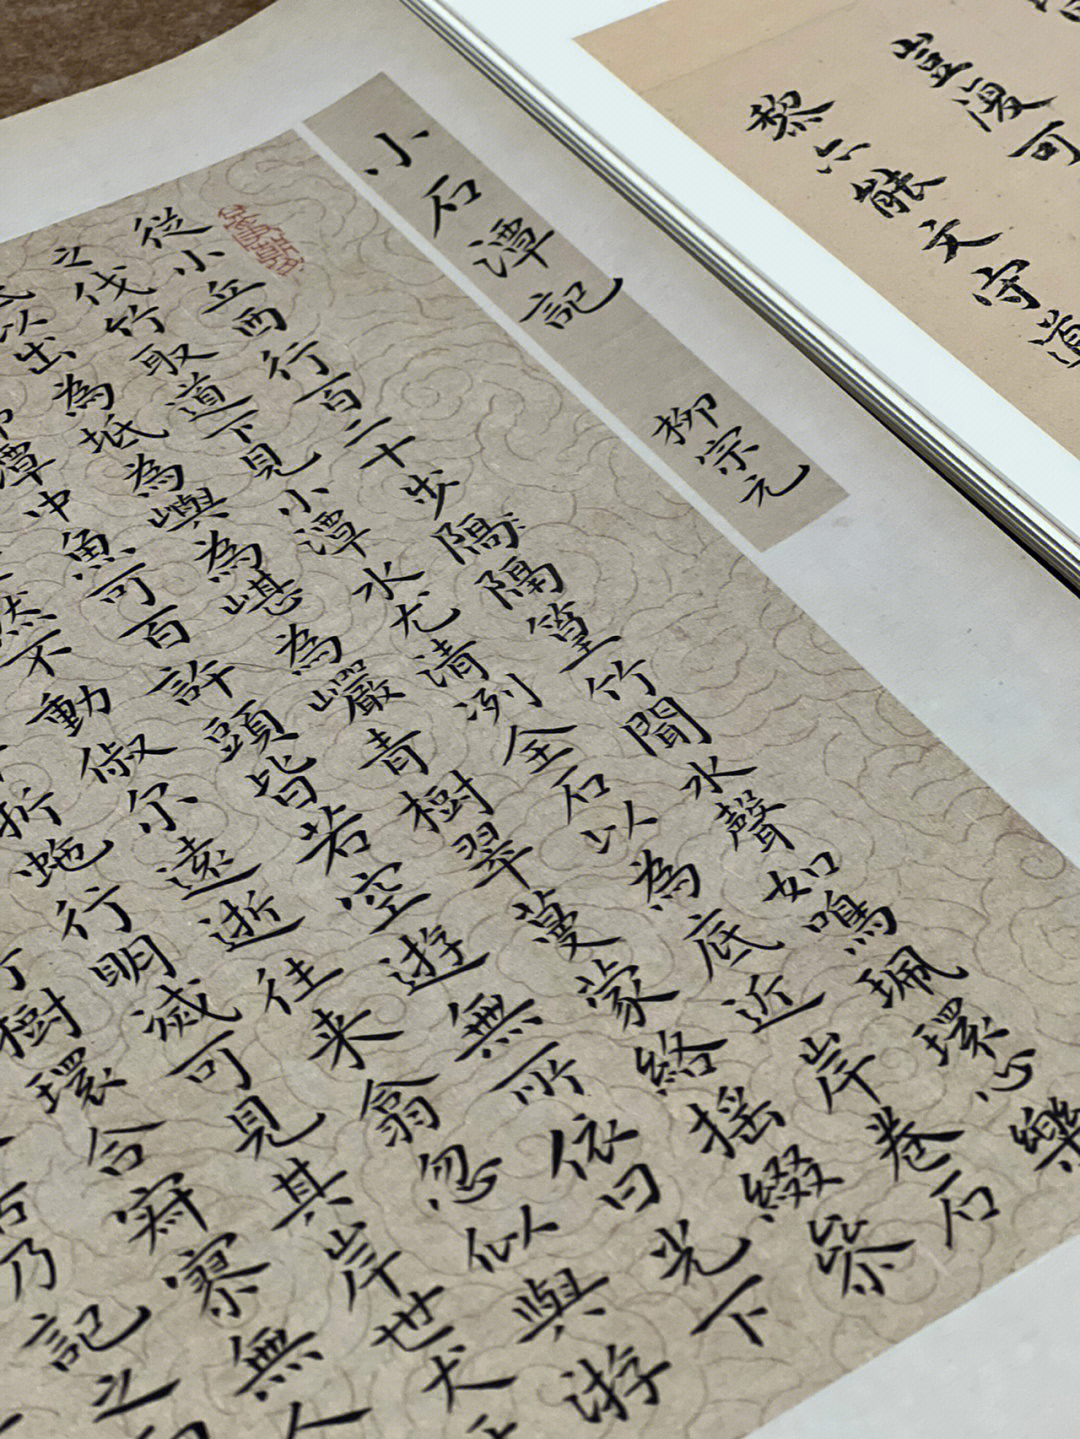 豈漫可
黎六能文守道
小石潭記 柳宗元
從小丘西行百二十步隔隔篁竹聞水聲如鳴珮環心樂
之伐竹取道下見小潭水尤清冽全石以為底近岸卷石
以出為坻為嶼為嵁為巖青樹翠蔓蒙絡搖綴參
潭中魚可百許頭皆若空遊無所依日光下
然不動俶尔遠逝往来翕忽似與游
折虵行明滅可見其岸世犬
樹環合寂寥無人
乃記之